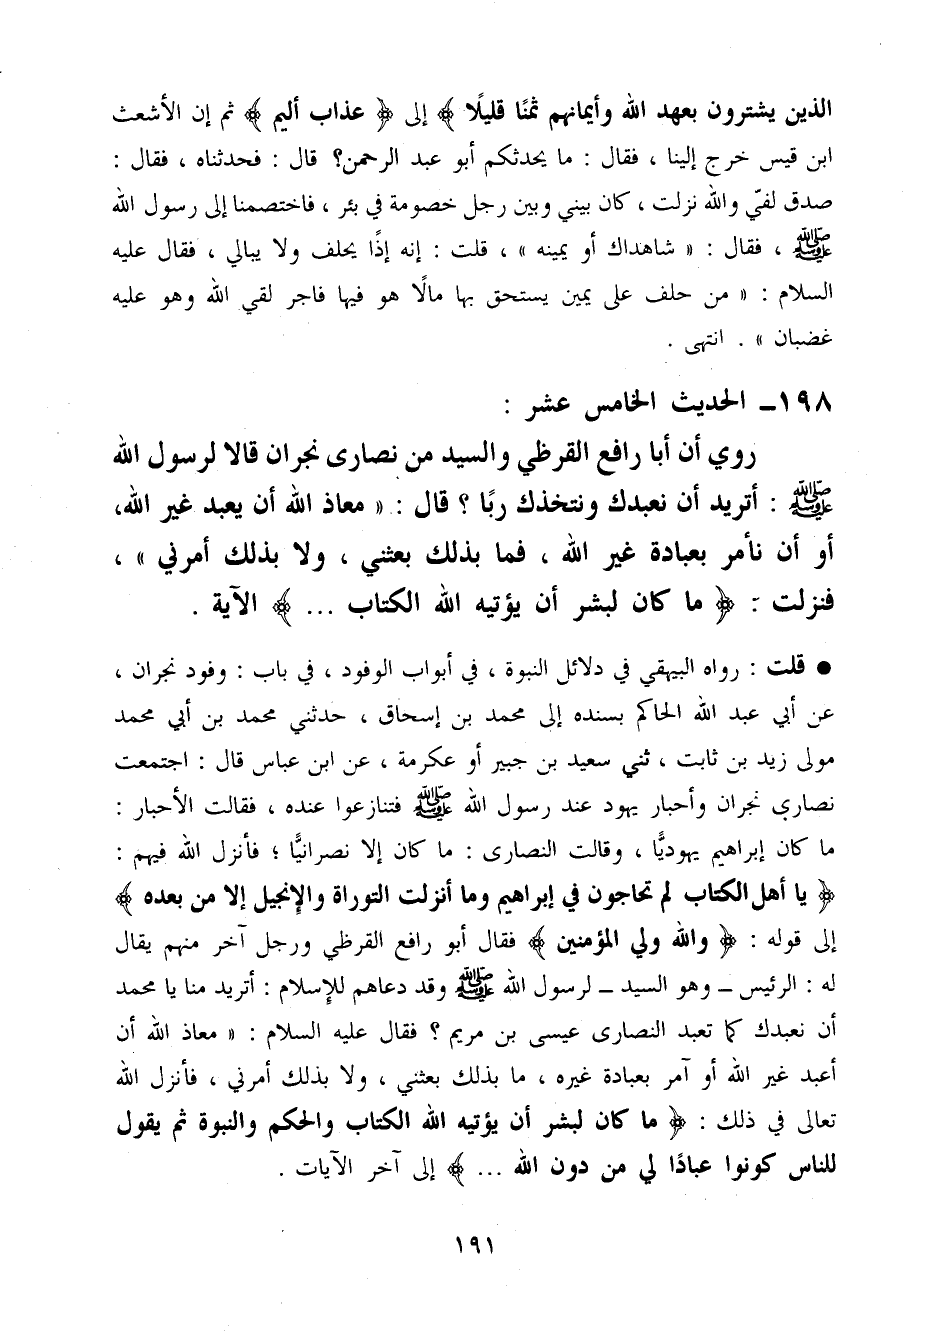 الذين يشترون بعهد الله وأيمانهم ثمنًا قليلًا ﴾ إلى ﴿ عذاب أليم ﴾ ثم إن الأشعث
ابن قيس خرج إلينا ، فقال : ما يحدثكم أبو عبد الرحمن؟ قال : فحدثناه ، فقال :
صدق لفيّ والله نزلت ، كان بيني وبين رجل خصومة في بئر ، فاختصمنا إلى رسول الله
ﷺ ، فقال : « شاهداك أو يمينه » ، قلت : إنه إذًا يحلف ولا يبالي ، فقال عليه
السلام : « من حلف على يمين يستحق بها مالًا هو فيها فاجر لقي الله وهو عليه
غضبان » . انتهى .
١٩٨ـ الحديث الخامس عشر :
روي أن أبا رافع القرظي والسيد من نصارى نجران قالا لرسول الله
ﷺ : أتريد أن نعبدك ونتخذك ربًا ؟ قال : « معاذ الله أن يعبد غير الله،
أو أن نأمر بعبادة غير الله ، فما بذلك بعثني ، ولا بذلك أمرني » ،
فنزلت : ﴿ ما كان لبشر أن يؤتيه الله الكتاب ... ﴾ الآية .
● قلت : رواه البيهقي في دلائل النبوة ، في أبواب الوفود ، في باب : وفود نجران ،
عن أبي عبد الله الحاكم بسنده إلى محمد بن إسحاق ، حدثني محمد بن أبي محمد
مولى زيد بن ثابت ، ثني سعيد بن جبير أو عكرمة ، عن ابن عباس قال : اجتمعت
نصارى نجران وأحبار يهود عند رسول الله ﷺ فتنازعوا عنده ، فقالت الأحبار :
ما كان إبراهيم يهوديًّا ، وقالت النصارى : ما كان إلا نصرانيًّا ؛ فأنزل الله فيهم :
﴿ يا أهل الكتاب لم تحاجون في إبراهيم وما أنزلت التوراة والإنجيل إلا من بعده ﴾
إلى قوله : ﴿ والله ولي المؤمنين ﴾ فقال أبو رافع القرظي ورجل آخر منهم يقال
له : الرئيس ـ وهو السيد ـ لرسول الله ﷺ وقد دعاهم للإسلام : أتريد منا يا محمد
أن نعبدك كما تعبد النصارى عيسى بن مريم ؟ فقال عليه السلام : « معاذ الله أن
أعبد غير الله أو آمر بعبادة غيره ، ما بذلك بعثني ، ولا بذلك أمرني ، فأنزل الله
تعالى في ذلك : ﴿ ما كان لبشر أن يؤتيه الله الكتاب والحكم والنبوة ثم يقول
للناس كونوا عبادًا لي من دون الله ... ﴾ إلى آخر الآيات .
١٩١